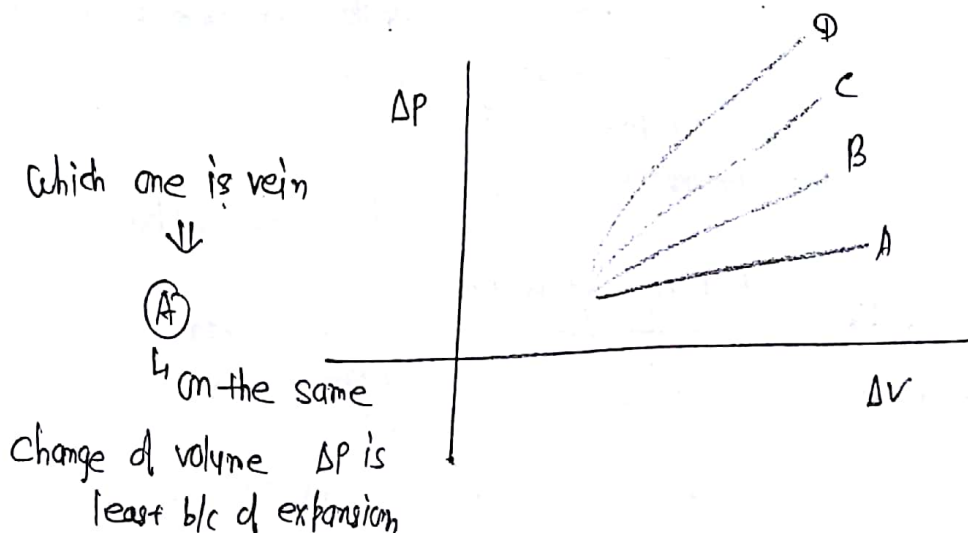 Which one is vein
⇓
A
↳ on the same
Change of volume ΔP is
least b/c of expansion
ΔP
D
C
B
A
ΔV